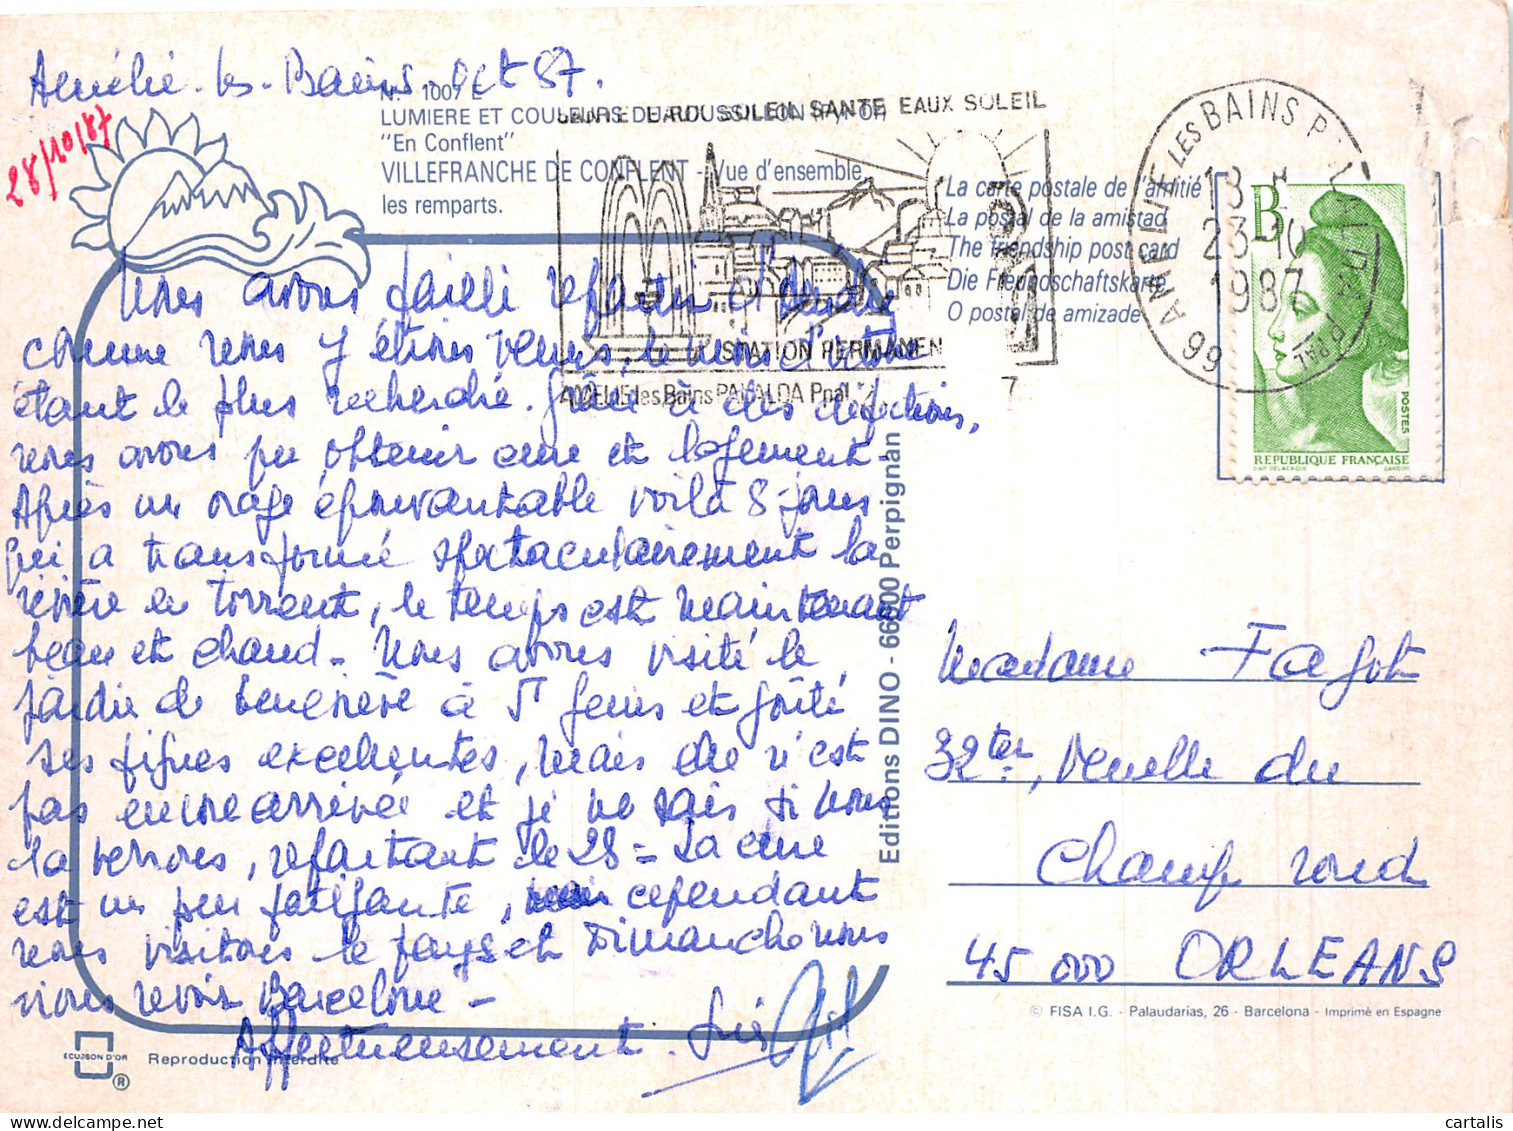 Amélie-les-Bains. Oct 87.
28/10/87
N° 1007 E
LUMIERE ET COULEURS DU ROUSSILLON
"En Conflent"
VILLEFRANCHE DE CONFLENT - Vue d'ensemble,
les remparts.
SANTE EAUX SOLEIL
STATION PERMANEN
AMELIE les Bains PALALDA Ppal
7
66 AMELIE LES BAINS PALALDA PPAL
18 H
23-10
1987
La carte postale de l'amitié
La postal de la amistad
The friendship post card
Die Freundschaftskarte
O postal de amizade
B
POSTES
REPUBLIQUE FRANÇAISE
D'AP DELACROIX GANDON
Nous avons failli repartir d'Amélie
comme nous y étions venus, le mois d'octobre
étant le plus recherché. Grâce à des défections,
nous avons pu obtenir cure et logement -
Après un orage épouvantable voilà 8 jours
qui a transformé spectaculairement la
rivière en torrent, le temps est maintenant
beau et chaud - Nous avons visité le
jardin de Geneviève à St Genis et goûté
ses figues excellentes, mais elle n'est
pas encore arrivée et je ne sais si nous
la verrons, repartant le 28 - La cure
est un peu fatigante, cependant
nous visitons le pays et Dimanche nous
irons revoir Barcelone -
Affectueusement.
Madame Fagot
32ter, Venelle du
Champ rond
45 000 ORLEANS
Editions DINO - 66000 Perpignan
© FISA I.G. - Palaudarias, 26 - Barcelona - Imprimé en Espagne
ECUSSON D'OR
®
Reproduction interdite
cartalis